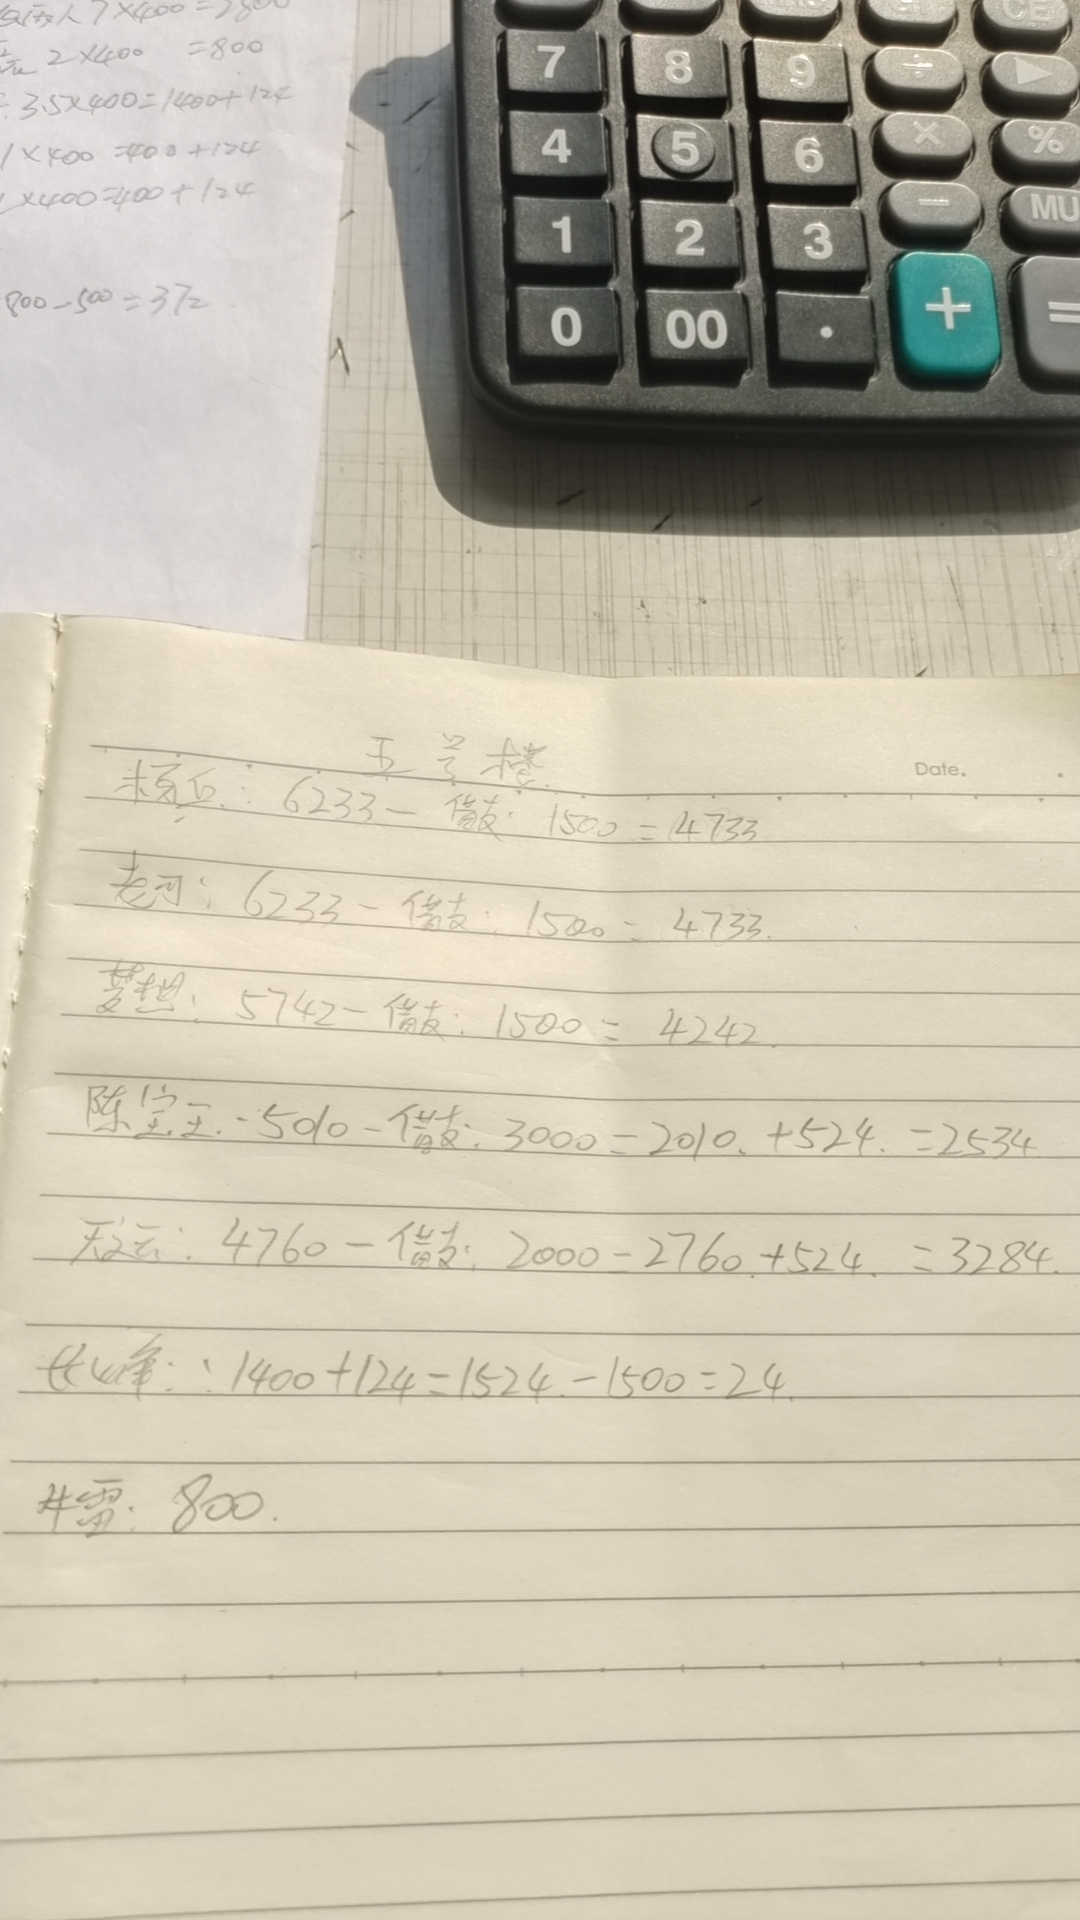 人7×400=2800
2×400 =800
:35×400=1400+124
1×400=400+124
1×400=400+124
800-500=372
CE
7 8 9 ÷ ▶
4 5 6 × %
1 2 3 − MU
0 00 . + =
五号楼
Date.
: 6233-借支: 1500=4733
老河: 6233-借支: 1500=4733.
梦想: 5742-借支: 1500= 4242.
陈宝玉.·5010-借支. 3000=2010. +524. =2534
天云: 4760-借支: 2000=2760.+524. =3284.
峰: 1400+124=1524.-1500=24.
雷: 800.